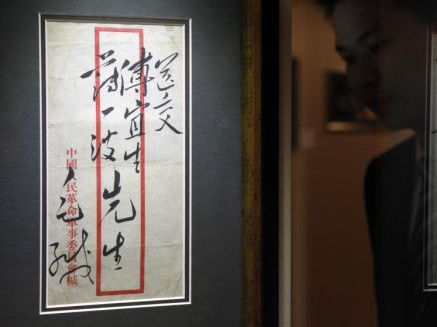 送交
傅宜生
薄一波
先生
毛緘
中國人民革命軍事委員會緘